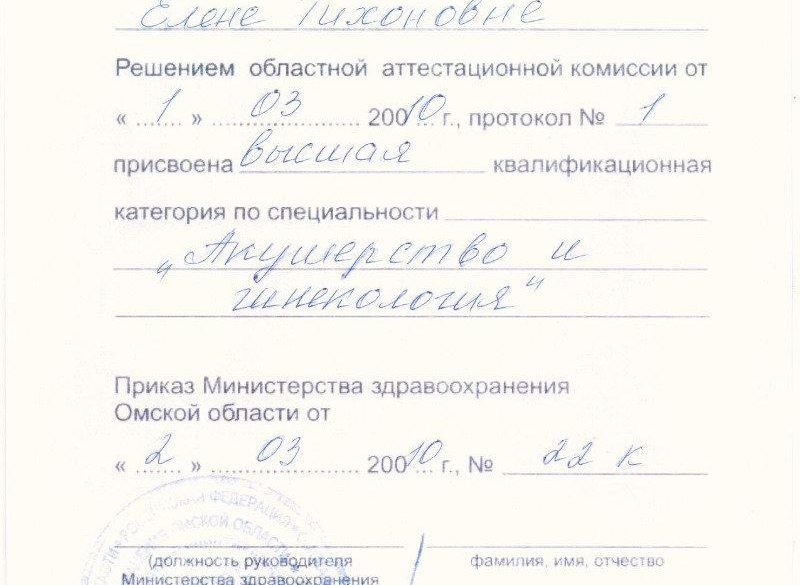 Елене Тихоновне
Решением областной аттестационной комиссии от
« 1 » 03 20010 г., протокол № 1
присвоена высшая квалификационная
категория по специальности
„Акушерство и
гинекология"
Приказ Министерства здравоохранения
Омской области от
« 2 » 03 20010 г., № 22 к
РОССИЙСКАЯ ФЕДЕРАЦИЯ
ОМСКОЙ ОБЛАСТИ
(должность руководителя фамилия, имя, отчество
Министерства здравоохранения